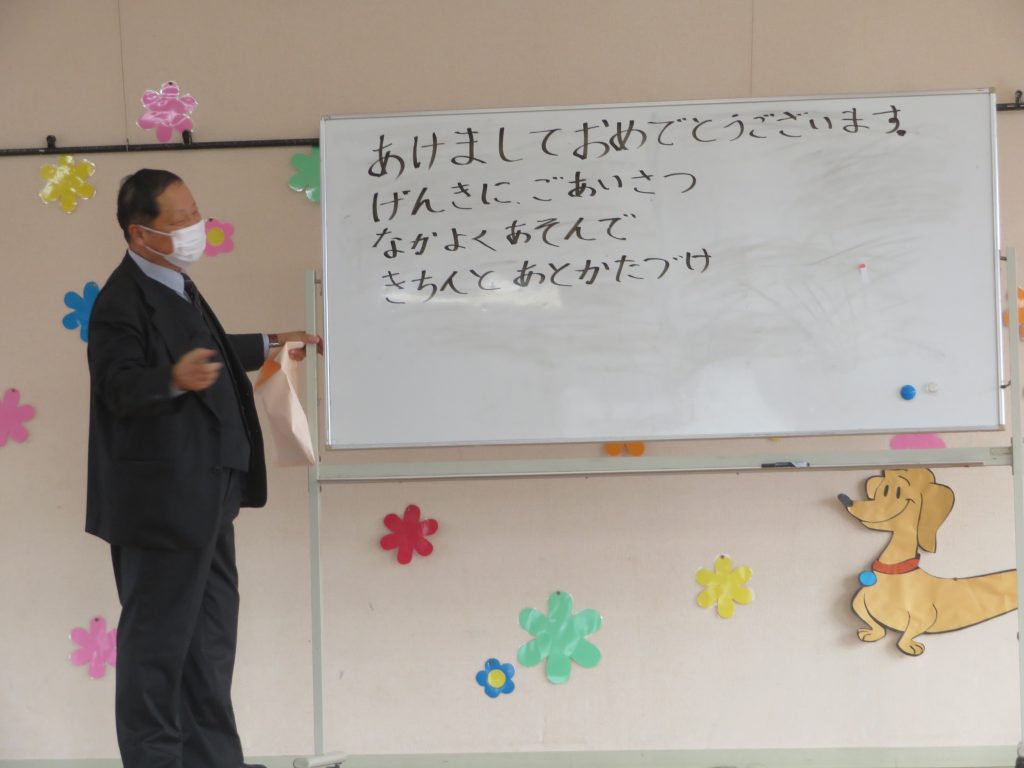 あけましておめでとうございます。
げんきに、ごあいさつ
なかよくあそんで
きちんとあとかたづけ